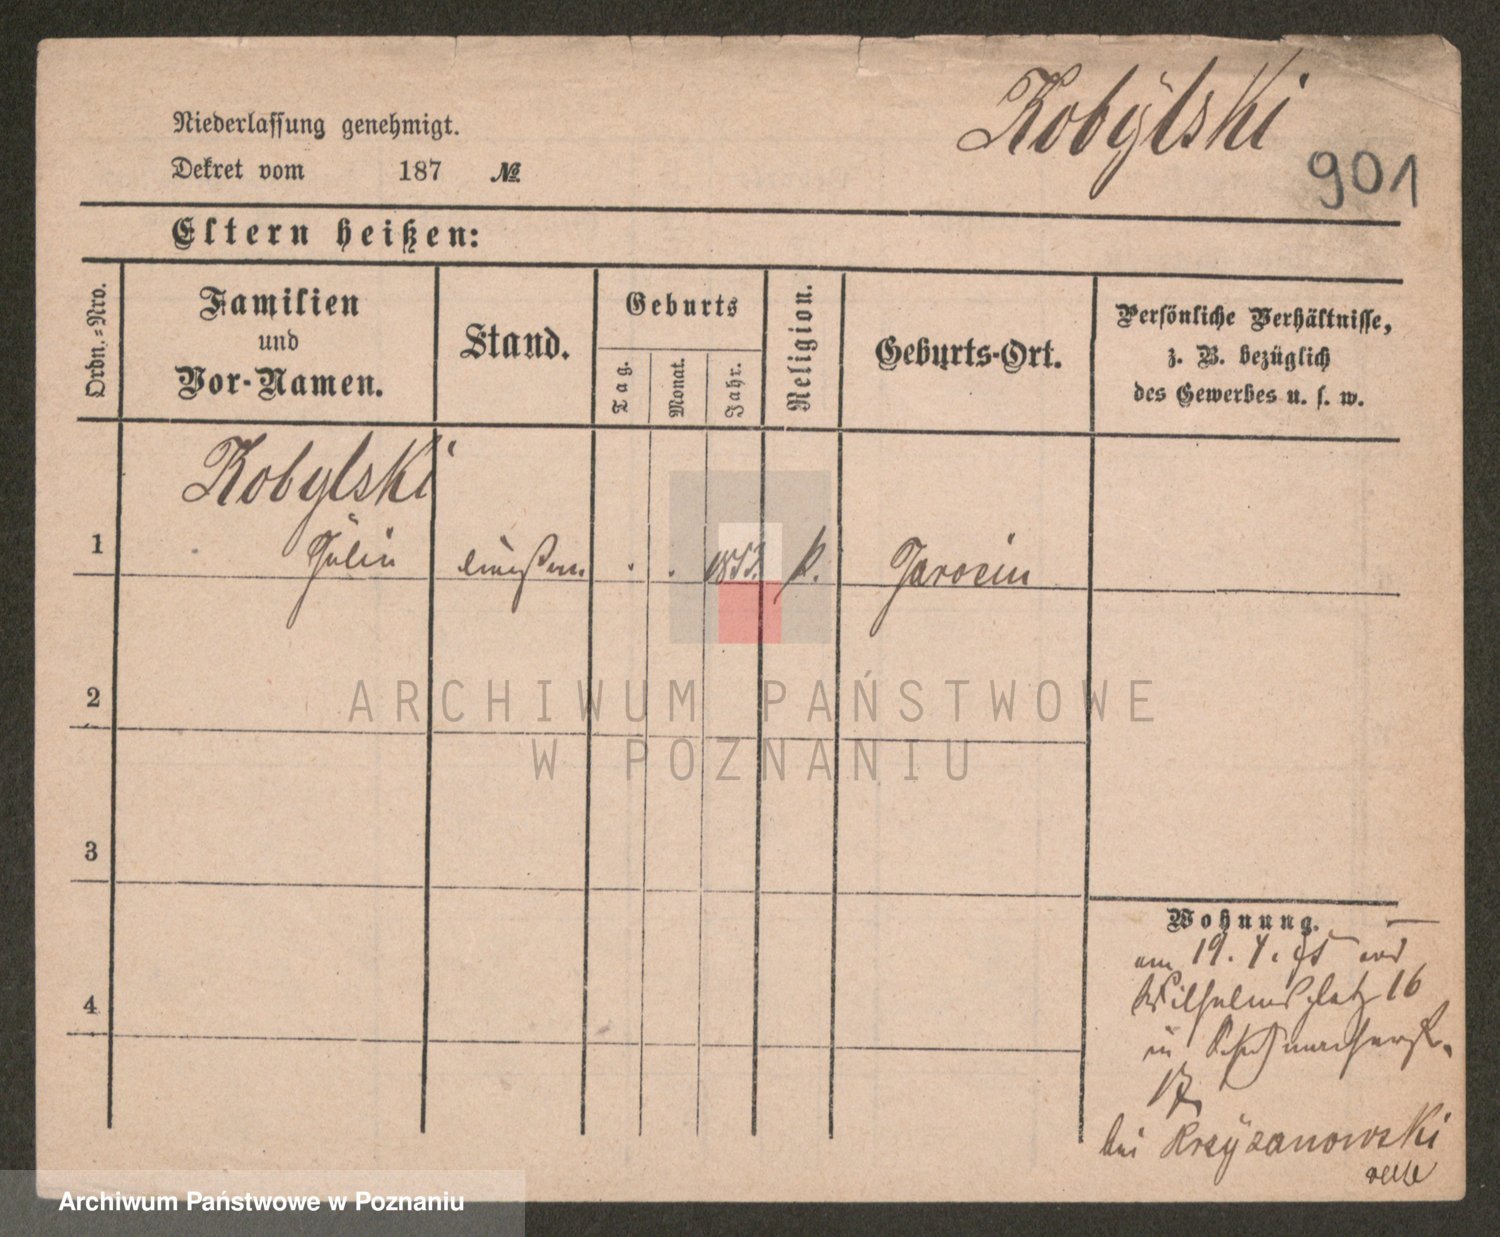 Kobylski
901
Niederlassung genehmigt.
Dekret vom 187 №
Eltern heißen:
Ordn.-Nro.
Familien
und
Vor-Namen.
Stand.
Geburts
Tag.
Monat.
Jahr.
Religion.
Geburts-Ort.
Persönliche Verhältnisse,
z. B. bezüglich
des Gewerbes u. s. w.
Kobylski
1 1853. k. Jarocin
2
3
4
Wohnung.
am 19. 4. 95
Wilhelmsplatz 16
17
bei Krzyzanowski
ARCHIWUM PAŃSTWOWE
W POZNANIU
Archiwum Państwowe w Poznaniu